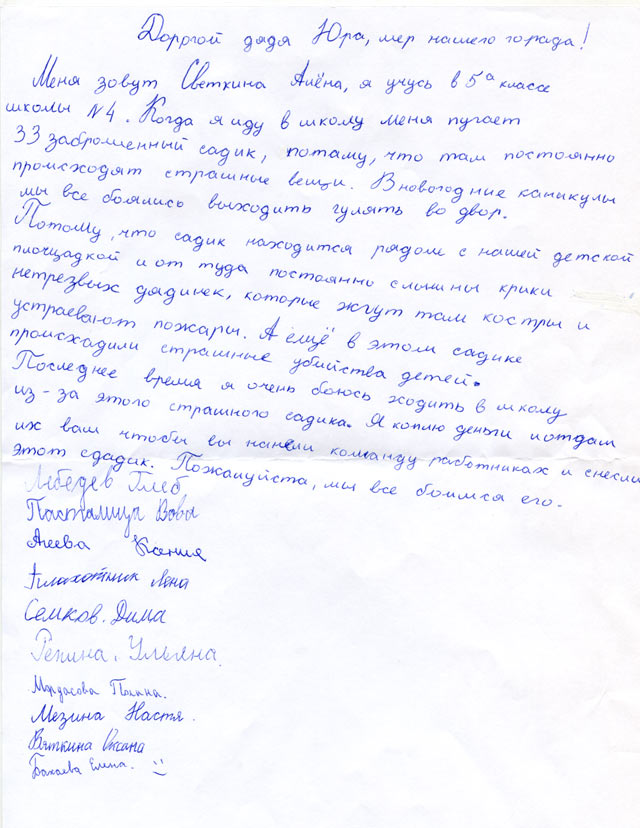 Дорогой дядя Юра, мер нашего города!
Меня зовут Светкина Алёна, я учусь в 5ª классе
школы №4. Когда я иду в школу меня пугает
33 заброшенный садик, потаму, что там постоянно
происходят страшные вещи. В новогодние каникулы
мы все боялись выходить гулять во двор.
Потому, что садик находится рядом с нашей детской
площадкой и от туда постоянно слышны крики
нетрезвых дядинек, которые жгут там костры и
устраевают пожары. А ещё в этом садике
происхадили страшные убийства детей.
Последнее время я очень боюсь ходить в школу
из-за этого страшного садика. Я коплю деньги и отдам
их вам чтобы вы наняли команду работниках и снесли
этот сдадик. Пожалуйста, мы все боимся его.
Лебедев Глеб
Вова
Агеева Ксения
Плахотник Лена
Семков. Дима
Репина. Ульяна.
Мордасова Полина.
Мезина Настя.
Вяткина Оксана
Бакаева Елена. :)